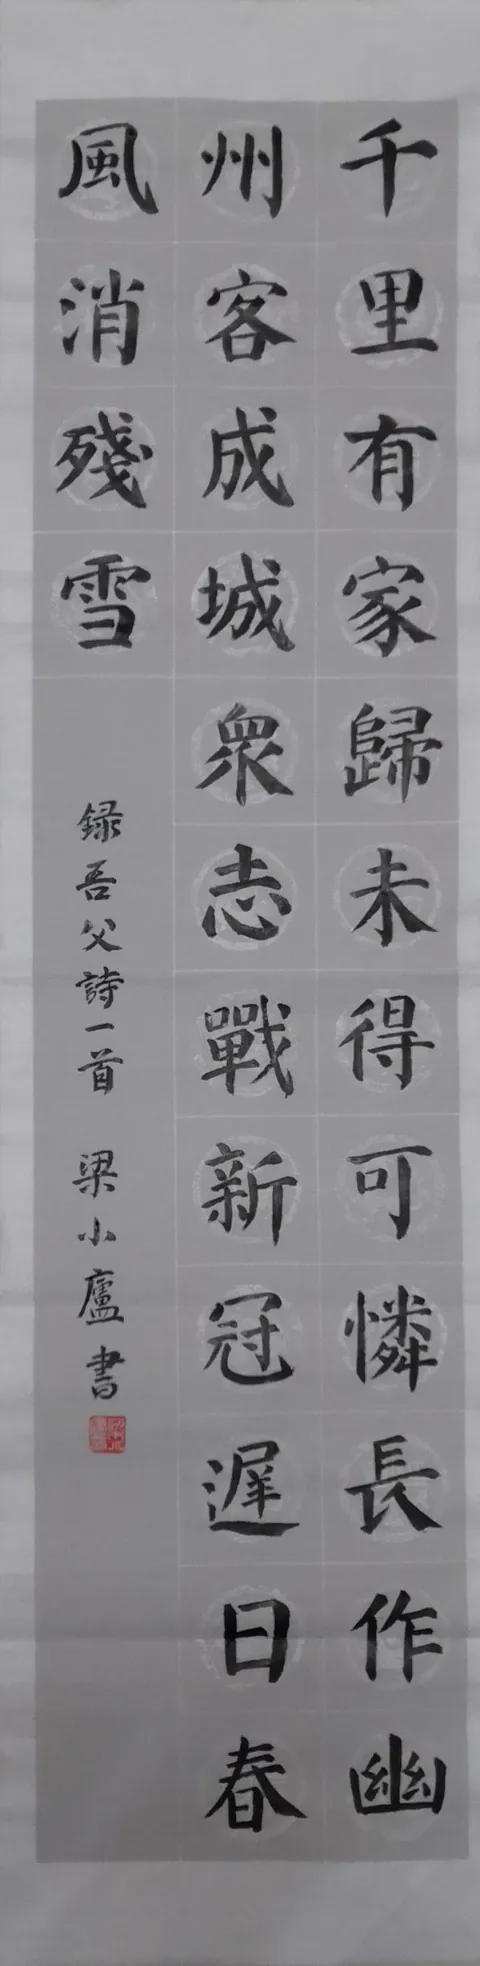 千里有家歸未得可憐長作幽
州客成城衆志戰新冠遲日春
風消殘雪
録吾父詩一首 梁小廬書